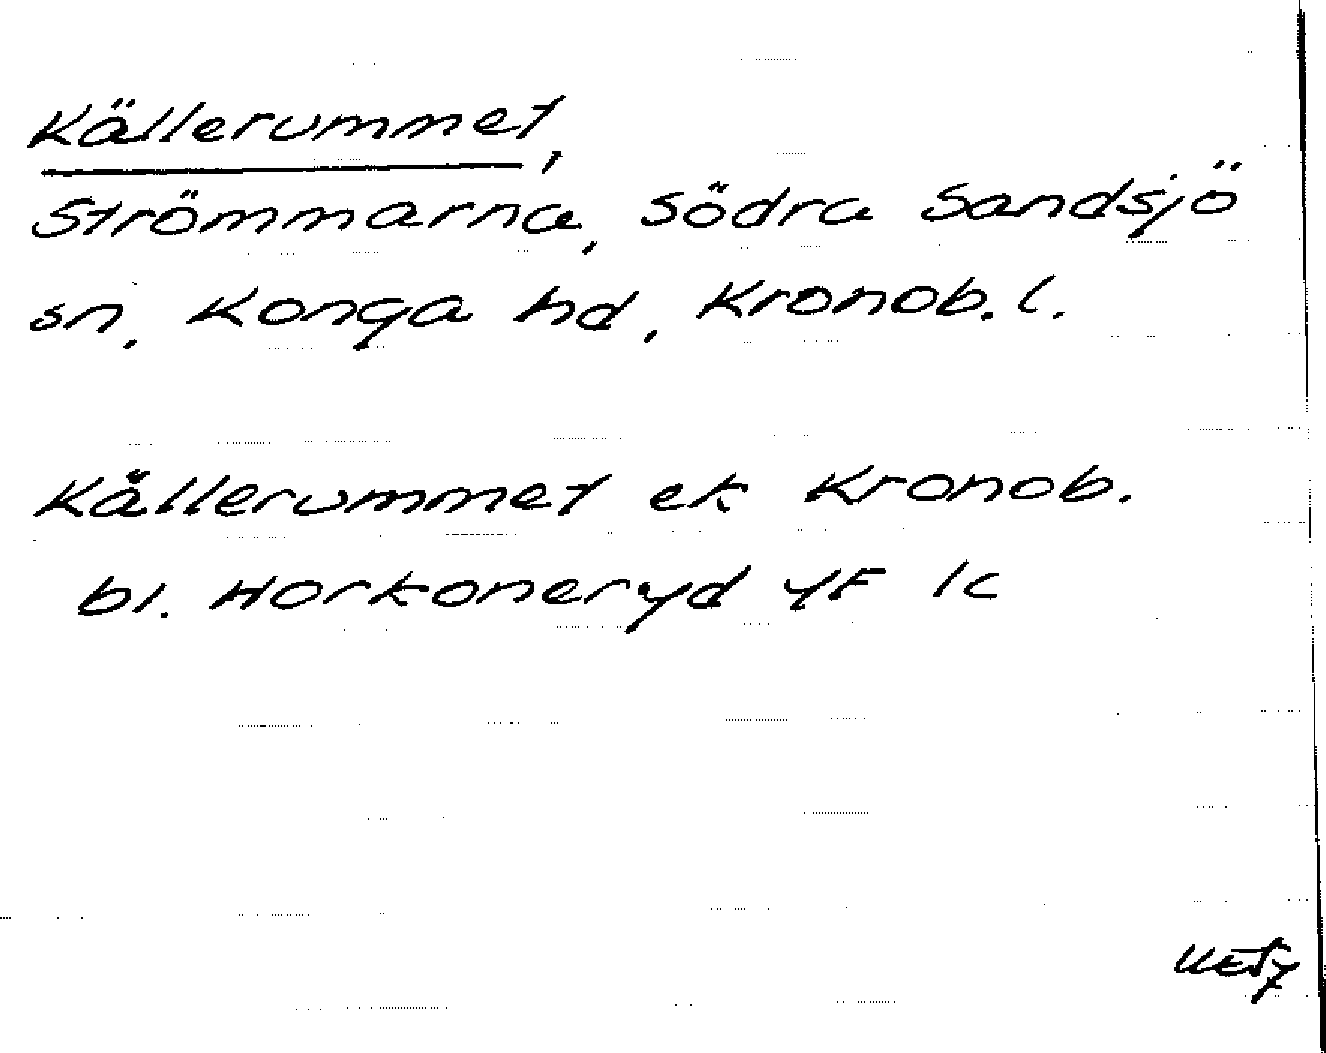 Källerummet,
Strömmarna, Södra Sandsjö
sn, Konga hd, Kronob. l.
Källerummet ek Kronob.
bl. Horkoneryd 4F 1c